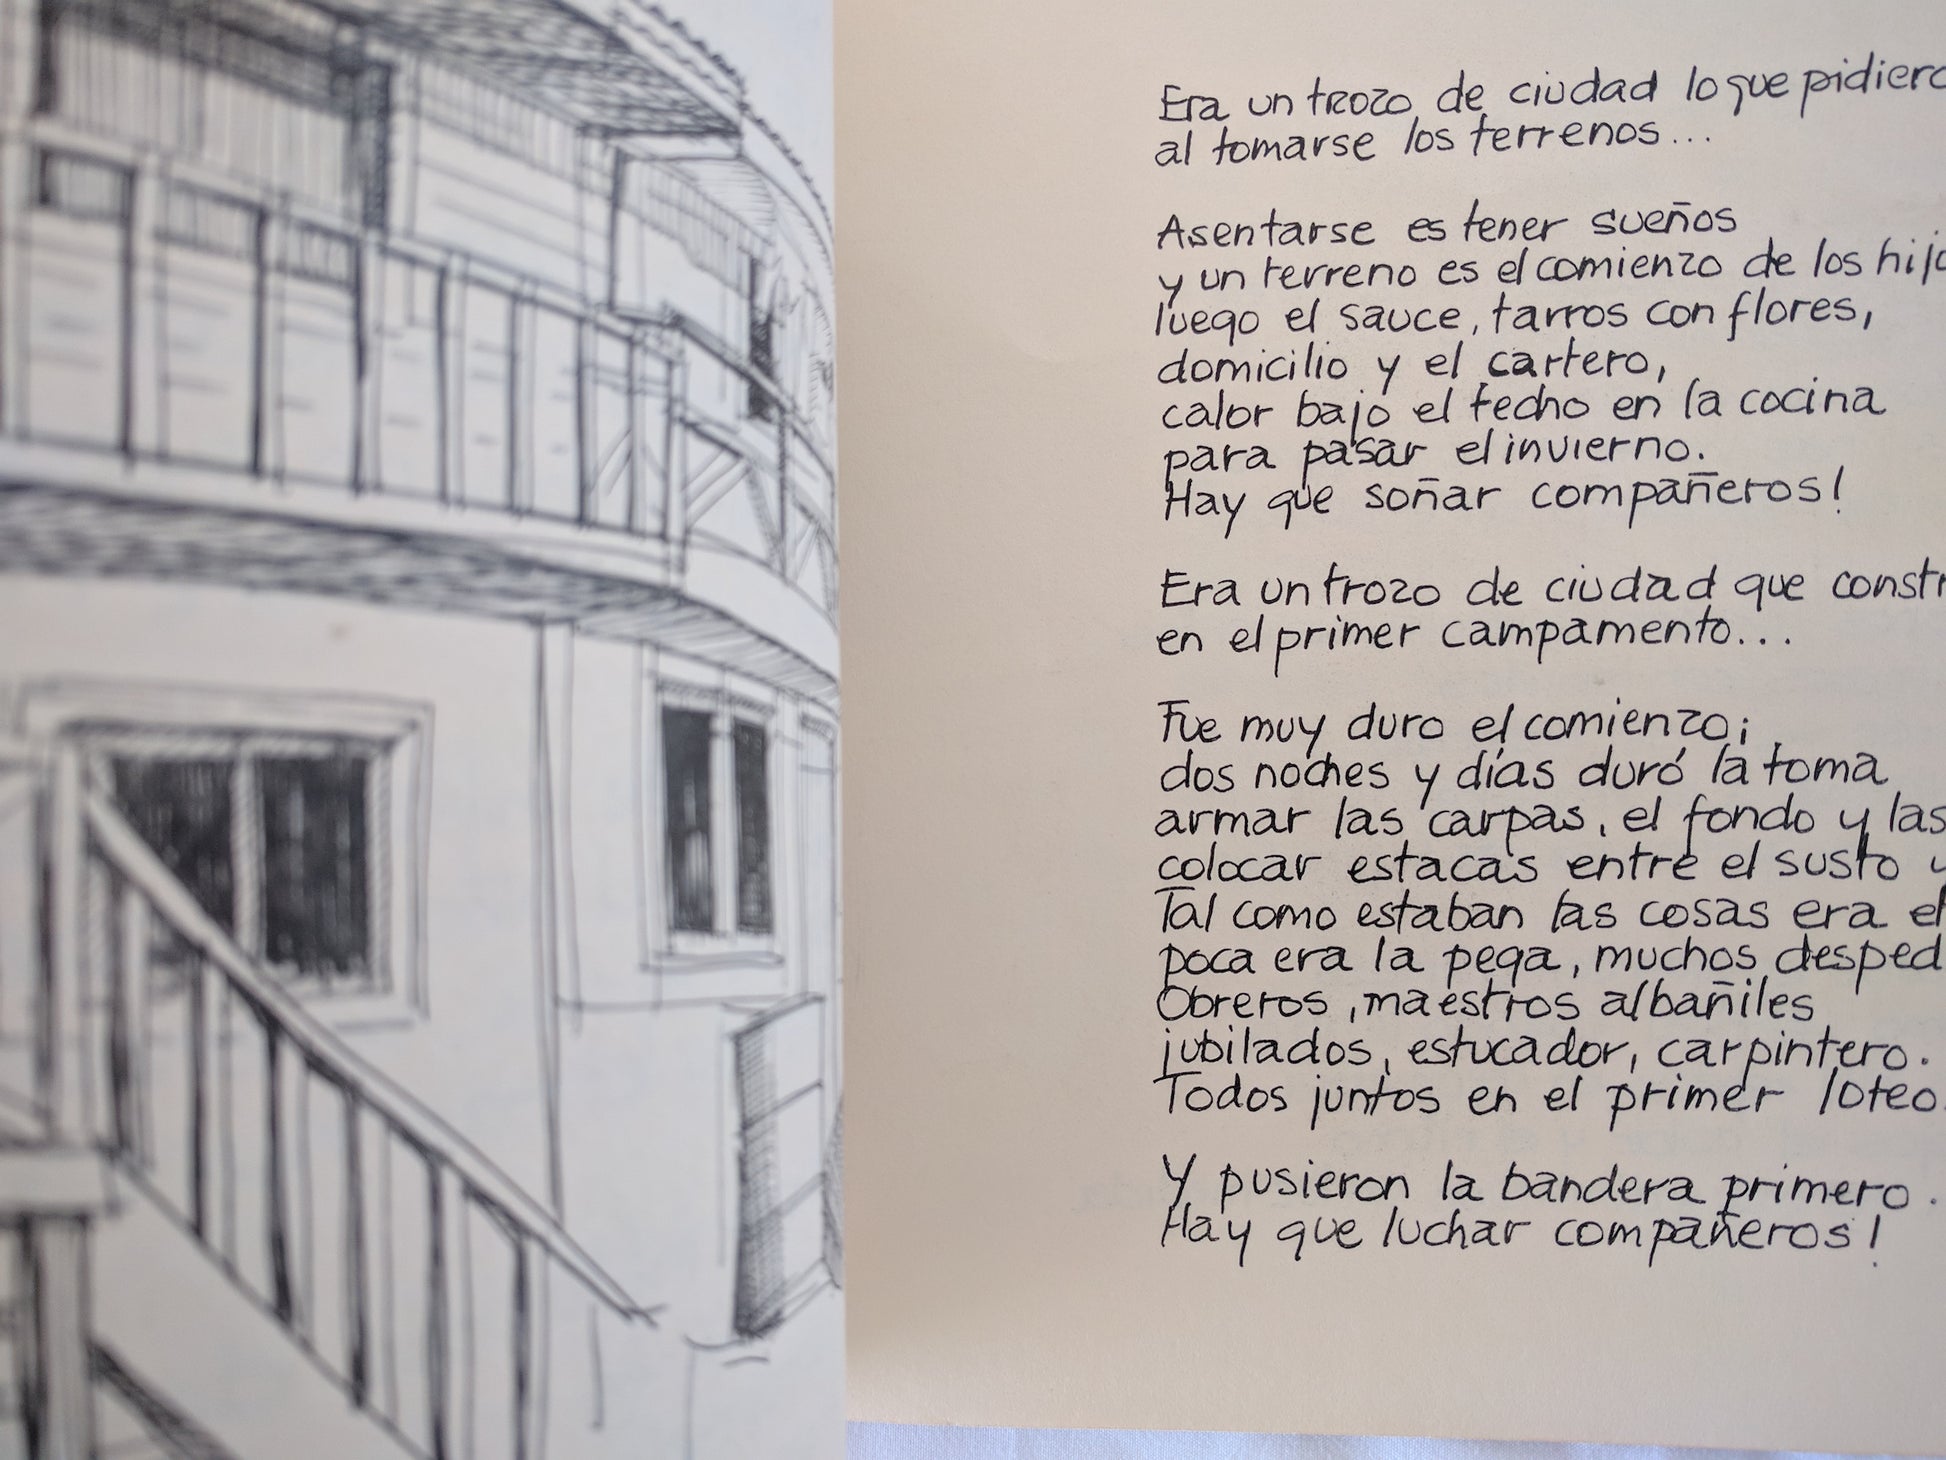 Era un trozo de ciudad lo que pidiero
al tomarse los terrenos...
Asentarse es tener sueños
y un terreno es el comienzo de los hijo
luego el sauce, tarros con flores,
domicilio y el cartero,
calor bajo el techo en la cocina
para pasar el invierno.
Hay que soñar compañeros!
Era un trozo de ciudad que constr
en el primer campamento...
Fue muy duro el comienzo;
dos noches y días duró la toma
armar las carpas, el fondo y las
colocar estacas entre el susto y
Tal como estaban las cosas era el
poca era la pega, muchos desped
Obreros, maestros albañiles
jubilados, estucador, carpintero.
Todos juntos en el primer loteo.
Y pusieron la bandera primero.
Hay que luchar compañeros!